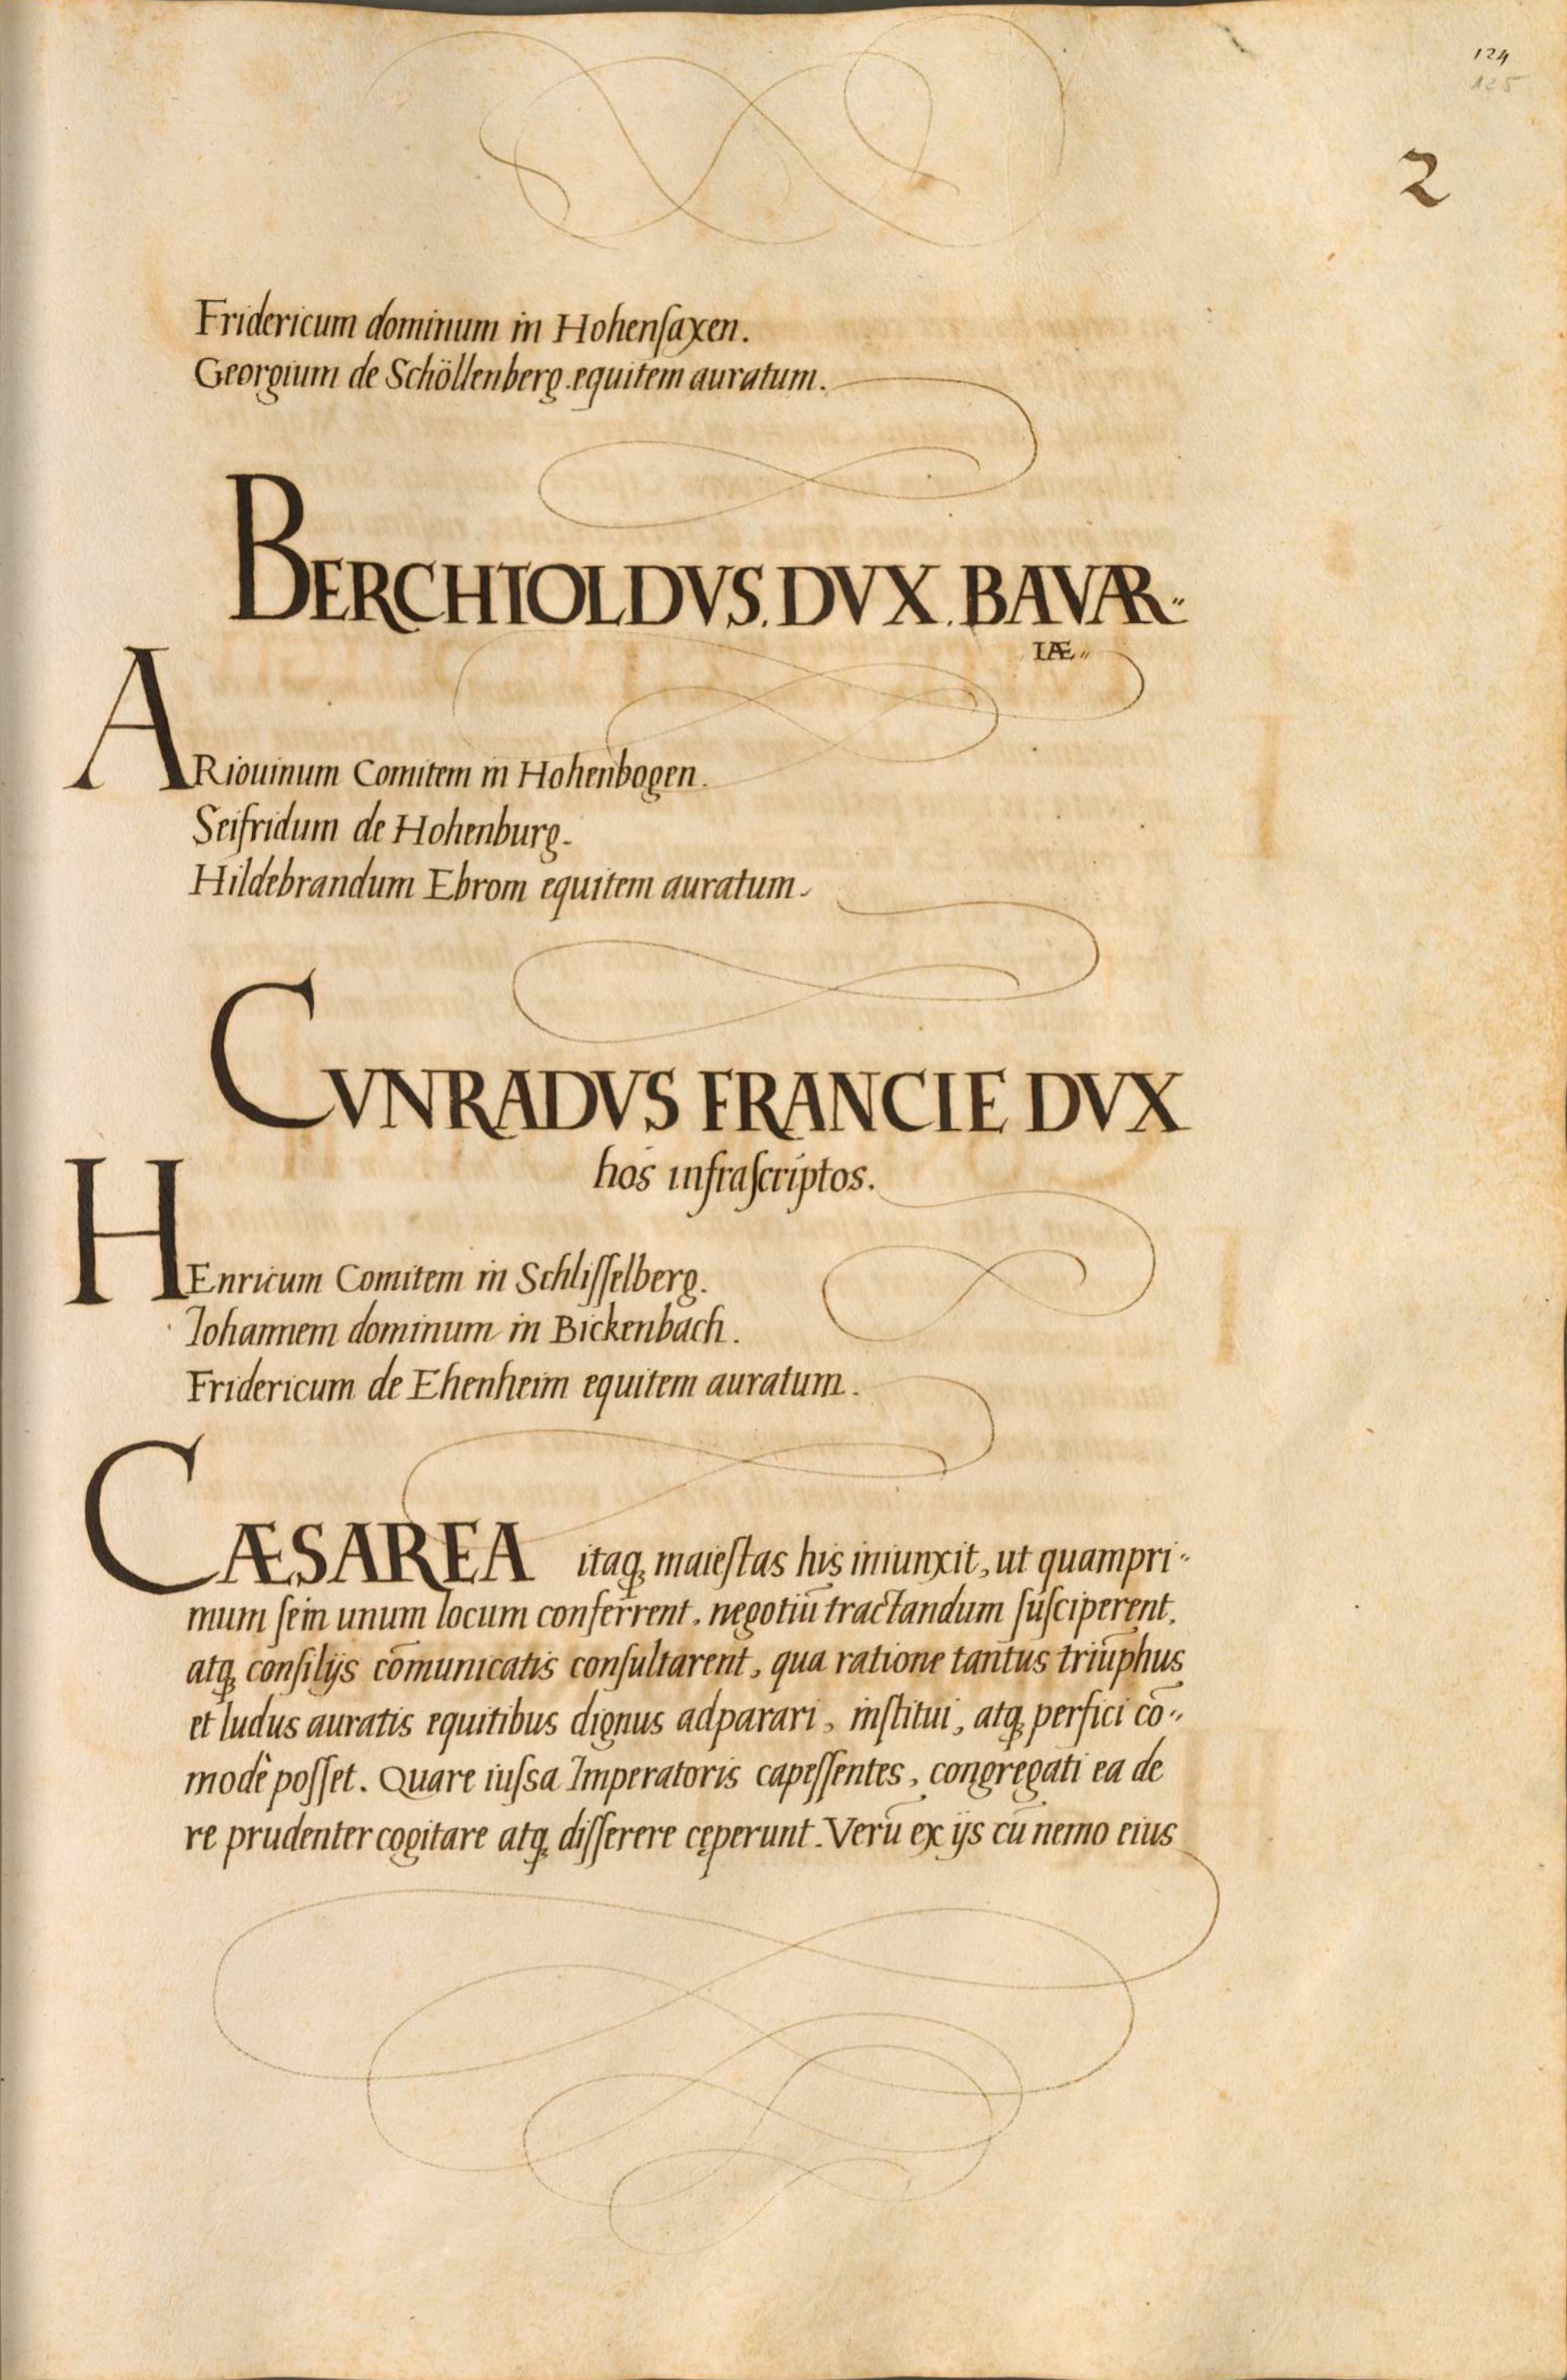 124
125
2
Fridericum dominum in Hohenſaxen.
Georgium de Schöllenberg. equitem auratum.
BERCHTOLDVS. DVX. BAVAR⸗
IÆ⸗
ARiouinum Comitem in Hohenbogen.
Seifridum de Hohenburg.
Hildebrandum Ebrom equitem auratum.
CVNRADVS FRANCIE DVX
hos infraſcriptos.
HEnricum Comitem in Schliſſelberg.
Iohannem dominum in Bickenbach.
Fridericum de Ehenheim equitem auratum.
CÆSAREA itaqꝫ maieſtas his iniunxit, ut quampri⸗
mum ſein unum locum conferrent, negotiū tractandum ſuſciperent,
atqꝫ conſilijs cōmunicatis conſultarent, qua ratione tantus triūphus
et ludus auratis equitibus dignus adparari, inſtitui, atqꝫ perfici cō⸗
modè poſſet. Quare iuſsa Imperatoris capeſſentes, congregati ea de
re prudenter cogitare atqꝫ diſſerere cęperunt. Verū ex ijs cū nemo eius